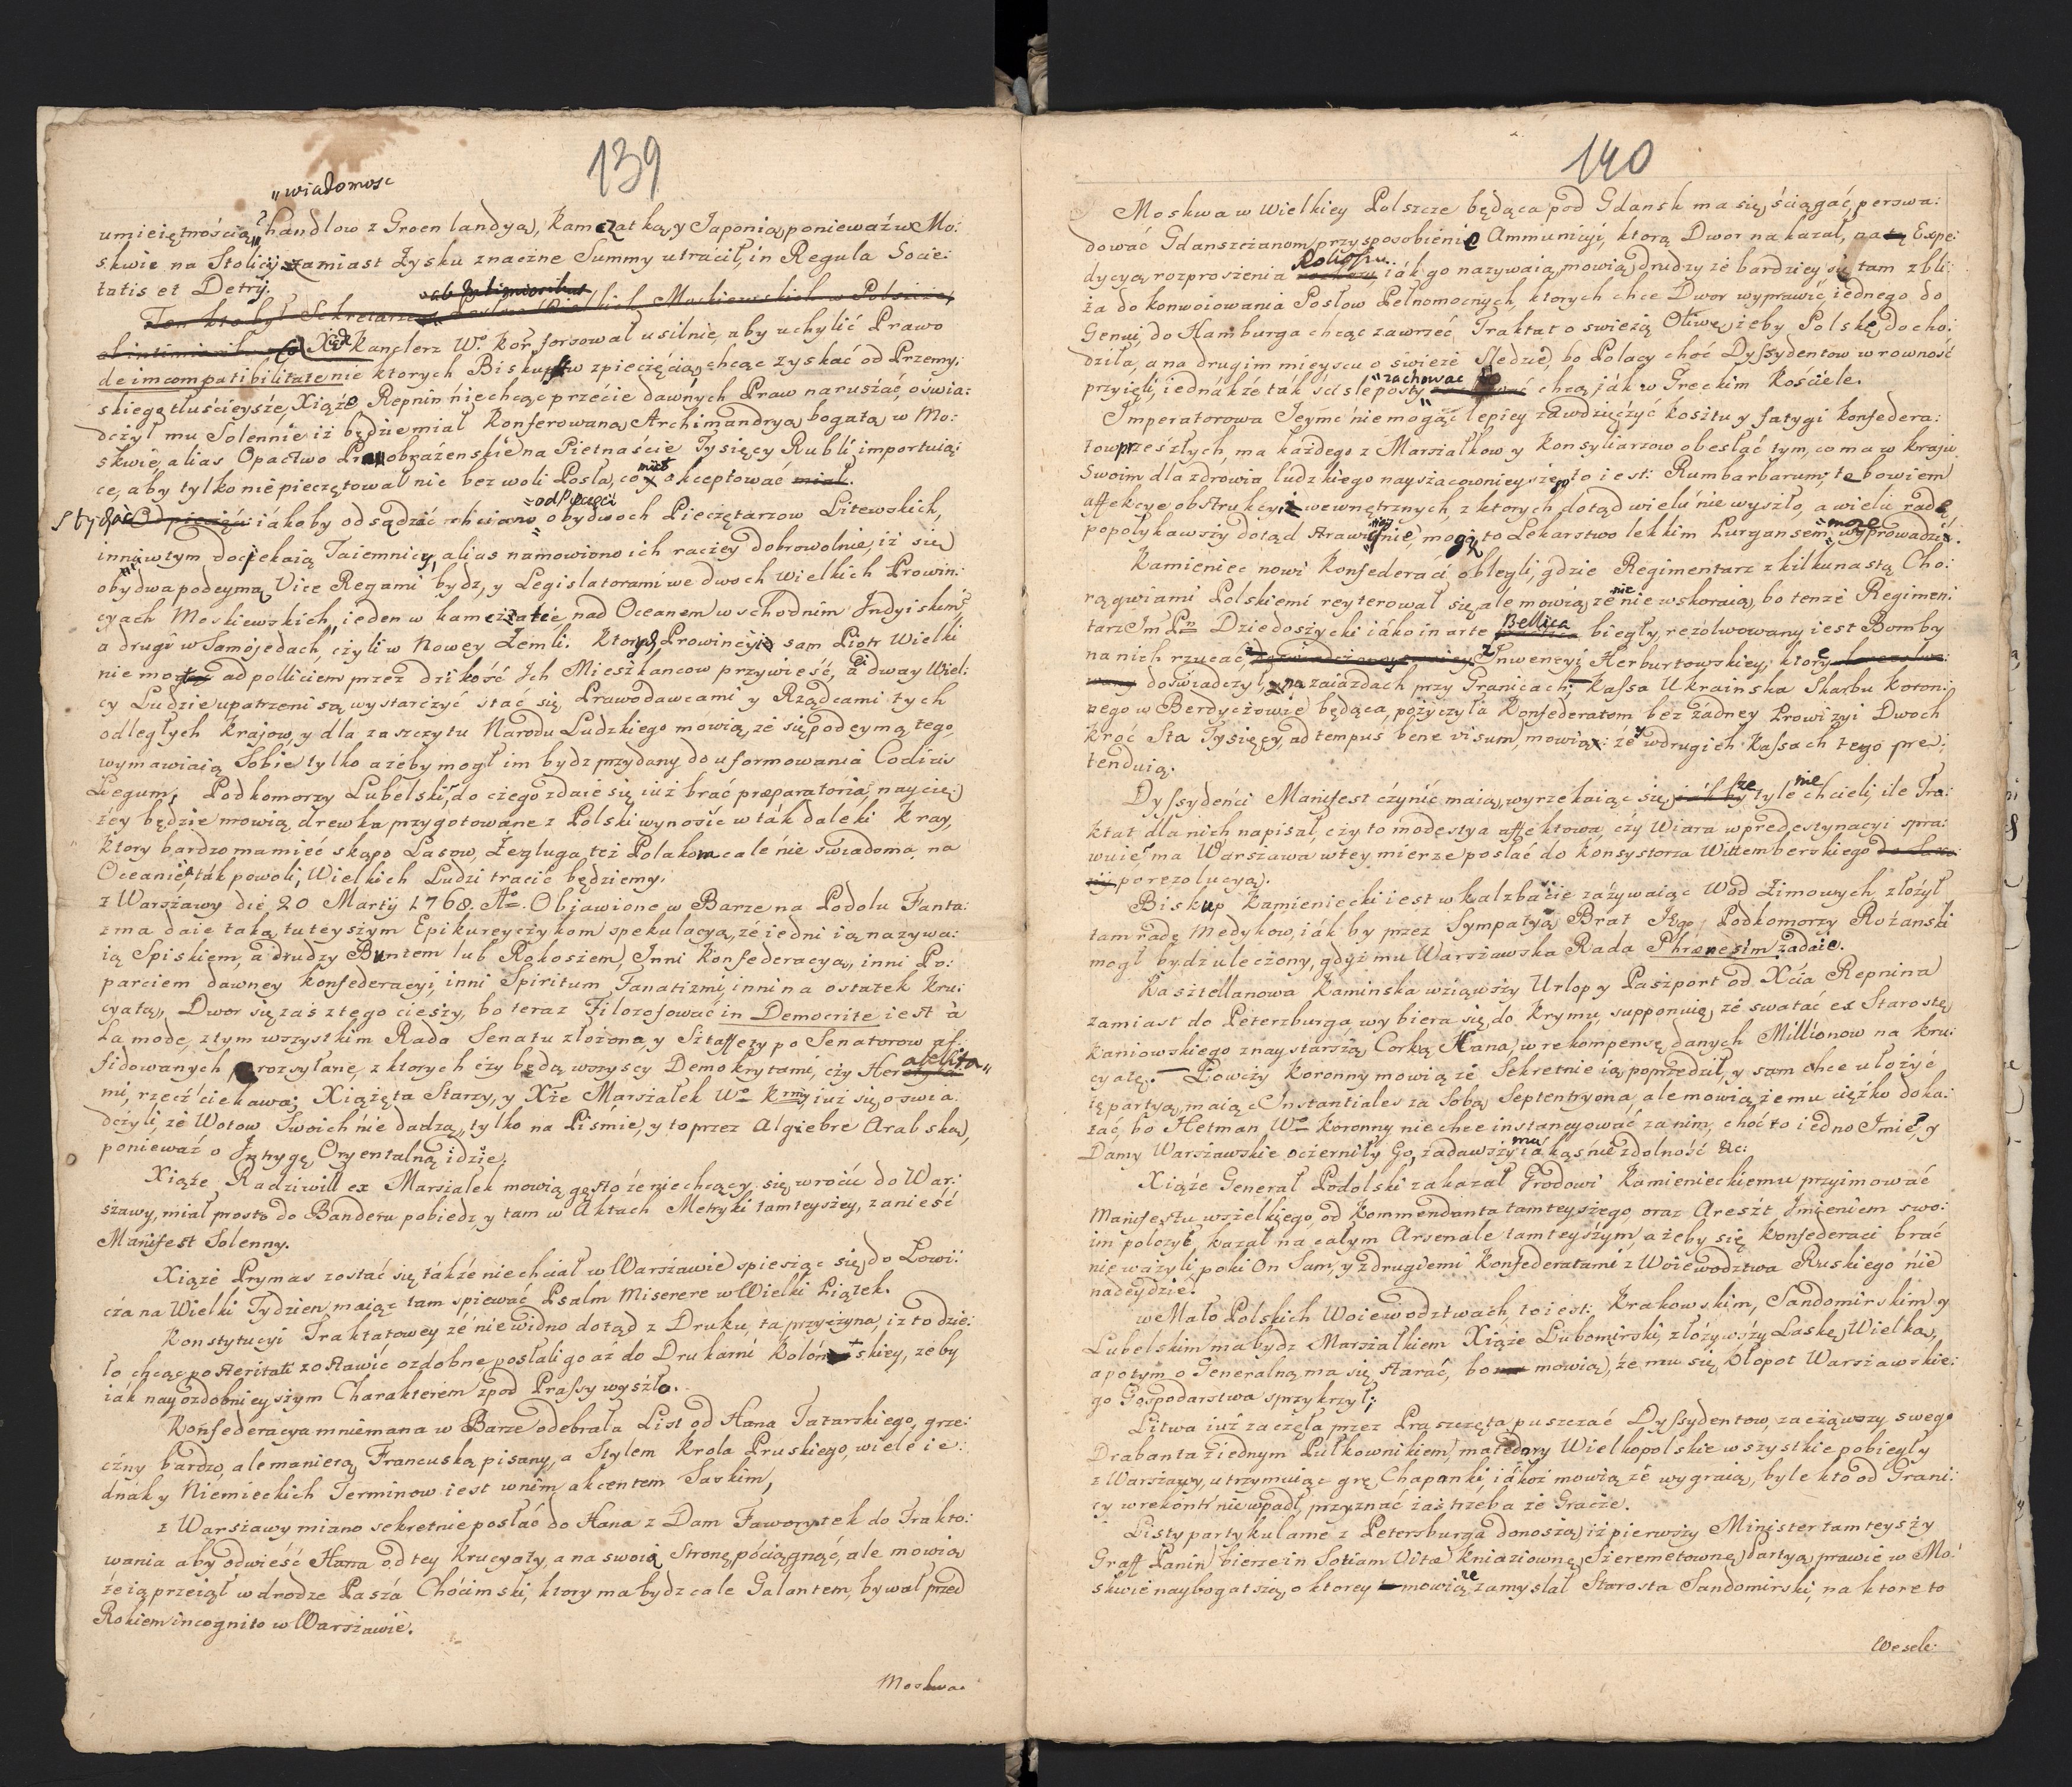 139
"wiadomosc
umieiętnością handlow z Groenlandyą, Kamczatką, y Japonią, ponieważ w Mo:
skwie na Stolicy zamiast Zysku znaczne Summy utracił, in Regula Socie:
tatis et Detrÿ.
Ten kto był Sekretarzem
Xże Kanclerz Wo Kor forsował usilnie, aby uchylić Prawo
de imcompatibilitate nie ktorych Biskupstw z pieczęcią, chcąc zyskać od Przemy:
skiego tłuścieysze, Xiąże Repnin niechcąc przecie dawnych Praw naruszać, oswia:
dczył mu Solennie iż będzie miał Konferowaną Archimandryą bogatą w Mo:
skwie, alias Opactwo Preobrażenskie na Pietnaście Tysięcy Rubli importuią:
ce, aby tylko nie pieczętował nic bez woli Posła, co miał akceptować miał.
Stydzic iákoby odsądzić chciano od Pieczęci obydwoch Pieczętarzow Litewskich,
inni w tym dociekaią Taiemnicy, alias namowiono ich raczey dobrowolnie, iż się
obydwa podeymą Vice Regami bydz, y Legislatorami we dwoch wielkich Prowin:
cyach Moskiewskich, ieden w Kamczatce, nad Oceanem wschodnim Indyiskim,
a drugi w Samojedach, czyli w Nowey Zemli. Ktorych Prowincyi sam Piotr Wielki
nie mogł ad polliciem przez dzikość Ich Mieszkancow przywieść, a dway Wiel:
cy Ludzie upatrzeni są wystarczyć stać się Prawodawcami y Rządcami tych
odległych Krajow, y dla zaszczytu Narodu Ludzkiego mowią, że się podeymą tego,
wymawiaią Sobie tylko ażeby mogł im bydz przydany do uformowania Codicis
Legum, Podkomorzy Lubelski, do czego zdaie się iuż brać præparatoria, naycię:
żey będzie mowią drewka przygotowane z Polski wynosić w ták daleki Kray,
Ktory bardzo ma mieć skąpo Lasow, Żegluga też Polakom cale nie swiadoma na
Oceanie, ták powoli, Wielkich Ludzi tracić będziemy.
z Warszawy die 20 Martÿ 1768. Ao. Objawione w Barze na Podolu Fanta:
zma daie taką tuteyszym Epikureyszykom spekulacyą, że iedni ią nazywa:
ią Spiskiem, a drudzy Buntem lub Rokoszem, Inni Konfederacyą, inni Po:
parciem dawney Konfederacyi, inni Spiritum Fanatizmi, inni na ostatek Kru:
cyatą, Dwor się zaś z tego cieszy, bo teraz Filozofować in Democrite iest à
la mode, z tym wszystkim Rada Senatu złożona, y Sztaffety po Senatorow af:
fidowanych rozsyłane, z ktorych czy będą wszyscy Demokrytami, czy Heraklita"
mi, rzecz ciekawa; Xiążęta Starzy, y Xże Marszałek Wo Krny iuż się oswia:
dczyli, że Wotow Swoich nie dadzą, tylko na Piśmie, y to przez Algiebrę Arabską,
ponieważ o Intrygę Oryentalną idzie.
Xiąże Radziwill ex Marszałek mowią gęsto że niechcący się wrócić do War:
szawy, miał prosto do Banderu pobiedz, y tam w Aktach Metryki tamteyszey, zanieść
Manifest Solenny.
Xiąże Prymas zostać się tákże niechciał w Warszawie spiesząc się do Łowi:
cza na Wielki Tydzien, maiąc tam spiewać Psalm Miserere w Wielki Piątek.
Konstytucyi Traktatowey że nie widno dotąd z Druku, ta przyczyna, iż to dzie:
ło chcąc posteritati zostawić ozdobne posłali go aż do Drukarni Kolonskiey, żeby
iak nayozdobnieyszym Charakterem zpod Prassy wyszło.
Konfederacya mniemana w Barze odebrała List od Hana Tatarskiego, grze:
czny bardzo, ale manierą Francuską pisany, a Stylem Krola Pruskiego, wiele ie:
dnak y Niemieckich Terminow iest w nim akcentem Saskim,
z Warszawy miano sekretnie posłać do Hana z Dam Faworytek do Trakto:
wania aby odwieść Hana od tey Krucyaty, a na swoią Stronę pociągnąć, ale mowią
że ią przeiął w drodze Pasza Chocimski, ktory ma bydz cale Galantem, bywał przed
Rokiem incognito w Warszawie.
Moskwa.
140
Moskwa w Wielkiey Polszcze będąca pod Gdansk ma się ściągać, perswa:
dować Gdanszczanom przysposobienie Ammunicyi, ktorą Dwor nakazał, na Expe:
dycyą rozproszenia Rokoszu iák go nazywaią, mowią drudzy że bardziey się tam zbli:
ża do konwoiowania Posłow Pełnomocnych, ktorych chce Dwor wyprawić, iednego do
Genui, do Hamburga chcąc zawrzeć Traktat o swieżą Oliwę, żeby Polskę docho:
dziła, a na drugim mieyscu o świeże Sledzie, bo Polacy choć Dyssydentow w rowność
przyięli, iednákże ták ściśle posty "zachować chcą, ják w Greckim Kościele.
Imperatorowa Jeymć niemogąc lepiey zawdzięczyć kosztu y fatygi Konfedera:
tow przeszłych, ma każdego z Marszałkow y Konsyliarzow obesłać tym, co ma w kraju
Swoim dla zdrowia ludzkiego nayszacownieyszego, to iest: Rumbarbarum, te bowiem
affekcye obstrukcyi wewnętrznych, z ktorych dotąd wielu nie wyszło, a wielu radę
popołykawszy dotąd strawić nie mogą, to Lekarstwo lekkim Purgansem "moze wyprowadzić.
Kamieniec nowi Konfederaci oblegli, gdzie Regimentarz z kilkunastą Cho:
rągwiami Polskiemi reyterował się, ale mowią że nic nie wskoraią, bo tenże Regimen:
tarz Im Pn Dzieduszycki iáko in arte Bellica biegły, rezolwowany iest Bomby
na nich rzucać Inwencyi Herburtowskiey, ktore
doświadczył na zaiazdach przy Granicach; Kassa Ukrainska Skarbu Koron:
nego w Berdyczowie będąca, pożyczyła Konfederatom bez żadney Prowizyi Dwoch
kroć Sta Tysięcy, ad tempus bene visum, mowią: że y w drugich Kassach tego pre:
tenduią.
Dyssydenci Manifest czynić maią, wyrzekaiąc się że tyle nie chcieli, ile Tra:
ktat dla nich napisał, czy to modestya affektowa, czy Wiara w predestynacyi spra:
wuie, ma Warszawa w tey mierze posłać do Konsystorza Wittemberskiego
po rezolucyą.
Biskup Kamieniecki iest w Kalzbacie zażywaiąc Wod Zimowych, złożył
tam radę Medykow, iák by przez Sympatyą Brat Jego Podkomorzy Rożanski
mogł bydz uleczony, gdyż mu Warszawska Rada Phrænesim zadaie.
Kasztellanowa Kaminska wziąwszy Urlop y Paszport od Xcia Repnina
zamiast do Peterzburga, wybiera się do Krymu, supponuię, że swatać ex Starostę
Kaniowskiego z naystarszą Corką Hana, w rekompensę danych Millionow na Kru:
cyatę. Łowczy Koronny mowią że Sekretnie ią poprzedził, y sam chce ułożyć
tę partyą, maiąc Instantiales za Sobą Septentryona, ale mowią że mu ciężko doka:
zać, bo Hetman Wo Koronny niechce instancyować za nim, choć to iedno Imie, y
Damy Warszawskie oczerniły Go, zadawszy mu iakąś niezdolność &c:
Xiąże Generał Podolski zakazał Grodowi Kamienieckiemu przyimować
Manifestu wszelkiego, od Kommendanta tamteyszego, oraz Areszt Imieniem swo:
im położyć kazał na całym Arsenale tamteyszym, ażeby się Konfederaci brać
nie ważyli, poki On Sam, y z drugiemi Konfederatami z Woiewodztwa Ruskiego nie
nadeydzie.
we Mało Polskich Woiewodztwach, to iest: Krakowskim, Sandomirskim y
Lubelskim ma bydz Marszałkiem Xiąże Lubomirski, złożywszy Laskę Wielką,
a potym o Generalną ma się starać, bo mowią, że mu się kłopot Warszawskie:
go Gospodarstwa sprzykrzył;
Litwa iuż zaczęła przez Praszczęta puszczać Dyssydentow, zaciąwszy swego
Drabanta z iednym Pułkownikiem, matedory Wielkopolskie wszystkie pobiegły
z Warszawy, utrzymuiąc grę Chapanki, iákoż mowią że wygraią, byle kto od Grani:
cy w rekontr nie wpadł, przyznać zaś trzeba że Gracze.
Listy partykularne z Petersburga donoszą iż pierwszy Minister tamteyszy
Graff Panin bierze in Sotiam Vitæ Kniaziownę Szeremetownę Partyą prawie w Mo:
skwie naybogatszą, o ktorey mowią że zamyślał Starosta Sandomirski, na ktore to
Wesele: